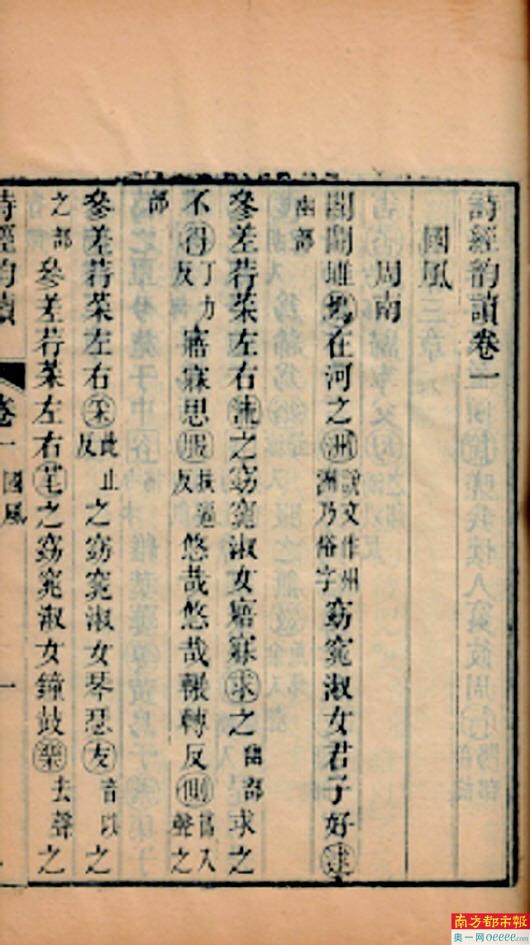 詩經韵讀卷一
國風
周南
關關雎鳩在河之洲說文作州洲乃俗字窈窕淑女君子好逑
幽部
參差荇菜左右流之窈窕淑女寤寐求之幽部求之
不得丁力反寤寐思服扶逼反悠哉悠哉輾轉反側入聲之
部
參差荇菜左右采此止反之窈窕淑女琴瑟友音以之
之部參差荇菜左右芼之窈窕淑女鐘鼓樂去聲之
詩經韵讀 卷一 國風 一
南方都市報
奥一网oeeee.com